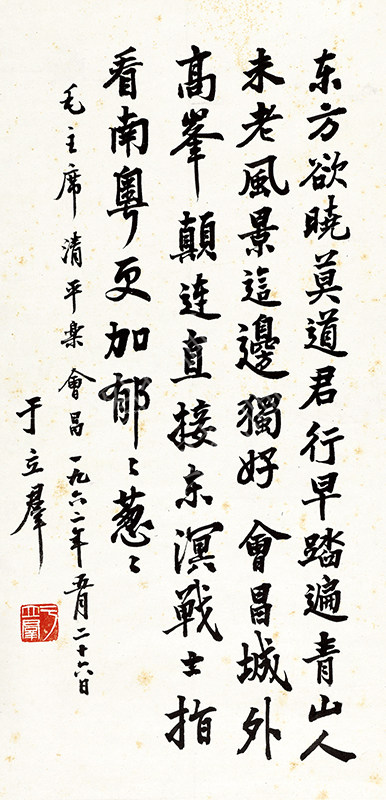 东方欲晓莫道君行早踏遍青山人
未老風景這邊獨好 會昌城外
高峯顛连直接东溟戰士指
看南粤更加郁〻葱〻
毛主席清平楽 會昌 一九六二年五月二十六日
于立羣
于立羣